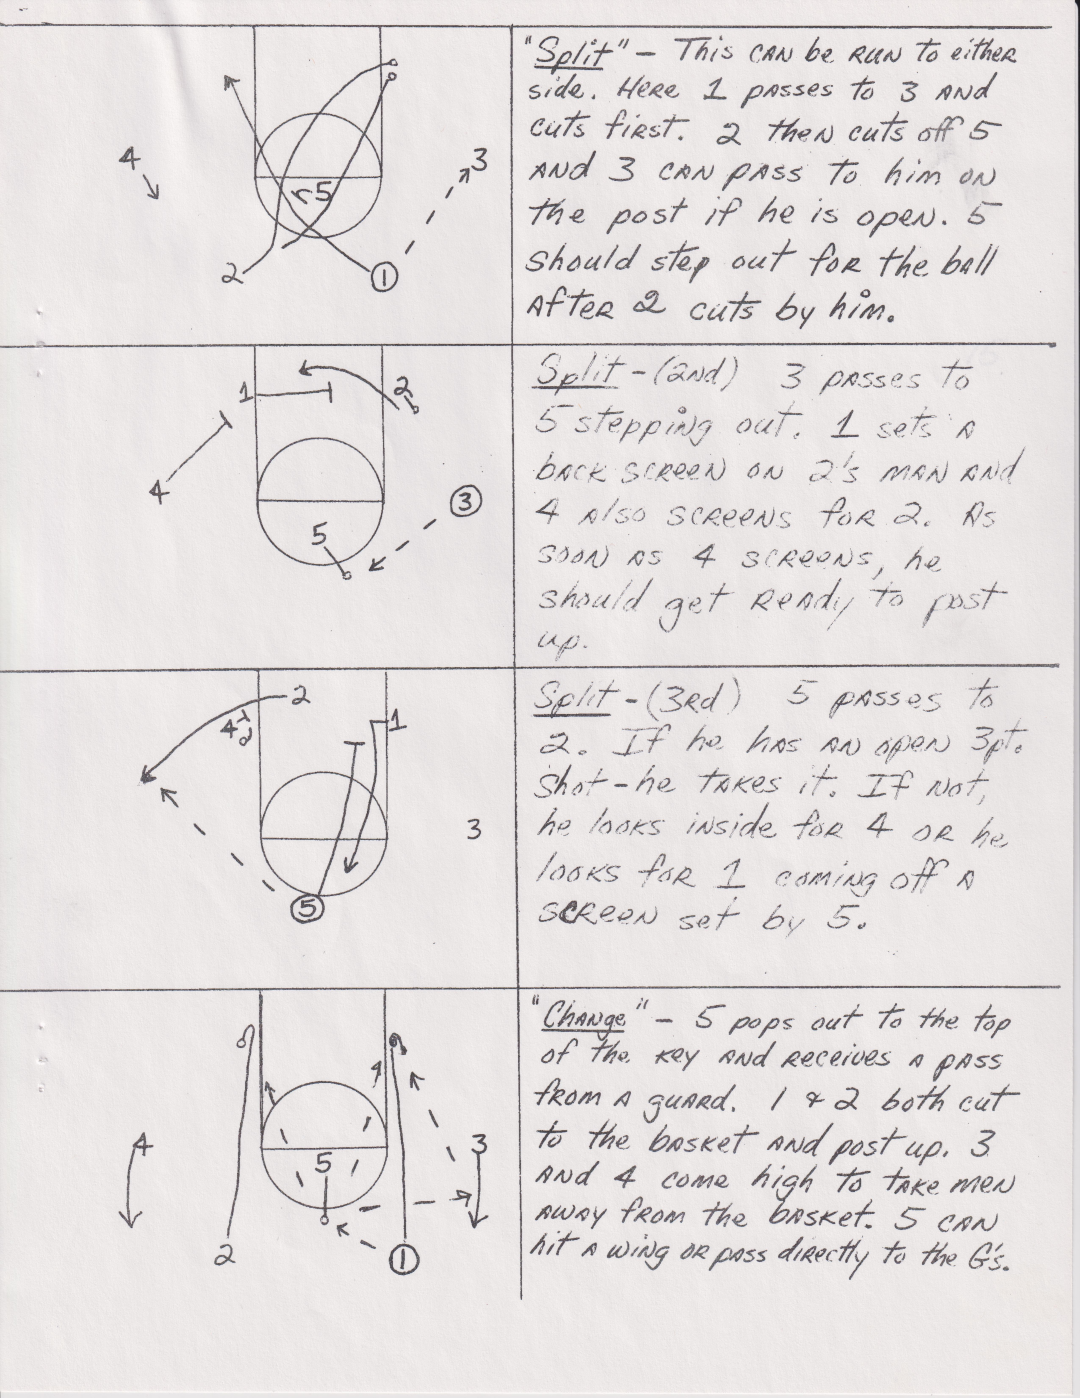 "Split" - This can be run to either
side. Here 1 passes to 3 and
cuts first. 2 then cuts off 5
and 3 can pass to him on
the post if he is open. 5
should step out for the ball
after 2 cuts by him.
4
3
5
2
1
Split - (2nd) 3 passes to
5 stepping out. 1 sets a
back screen on 2's man and
4 also screens for 2. As
soon as 4 screens, he
should get ready to post
up.
1
2
4
3
5
Split - (3rd) 5 passes to
2. If he has an open 3pt.
shot - he takes it. If not,
he looks inside for 4 or he
looks for 1 coming off a
screen set by 5.
2
4
1
3
5
"Change" - 5 pops out to the top
of the key and receives a pass
from a guard. 1 & 2 both cut
to the basket and post up. 3
and 4 come high to take men
away from the basket. 5 can
hit a wing or pass directly to the G's.
4
3
5
2
1